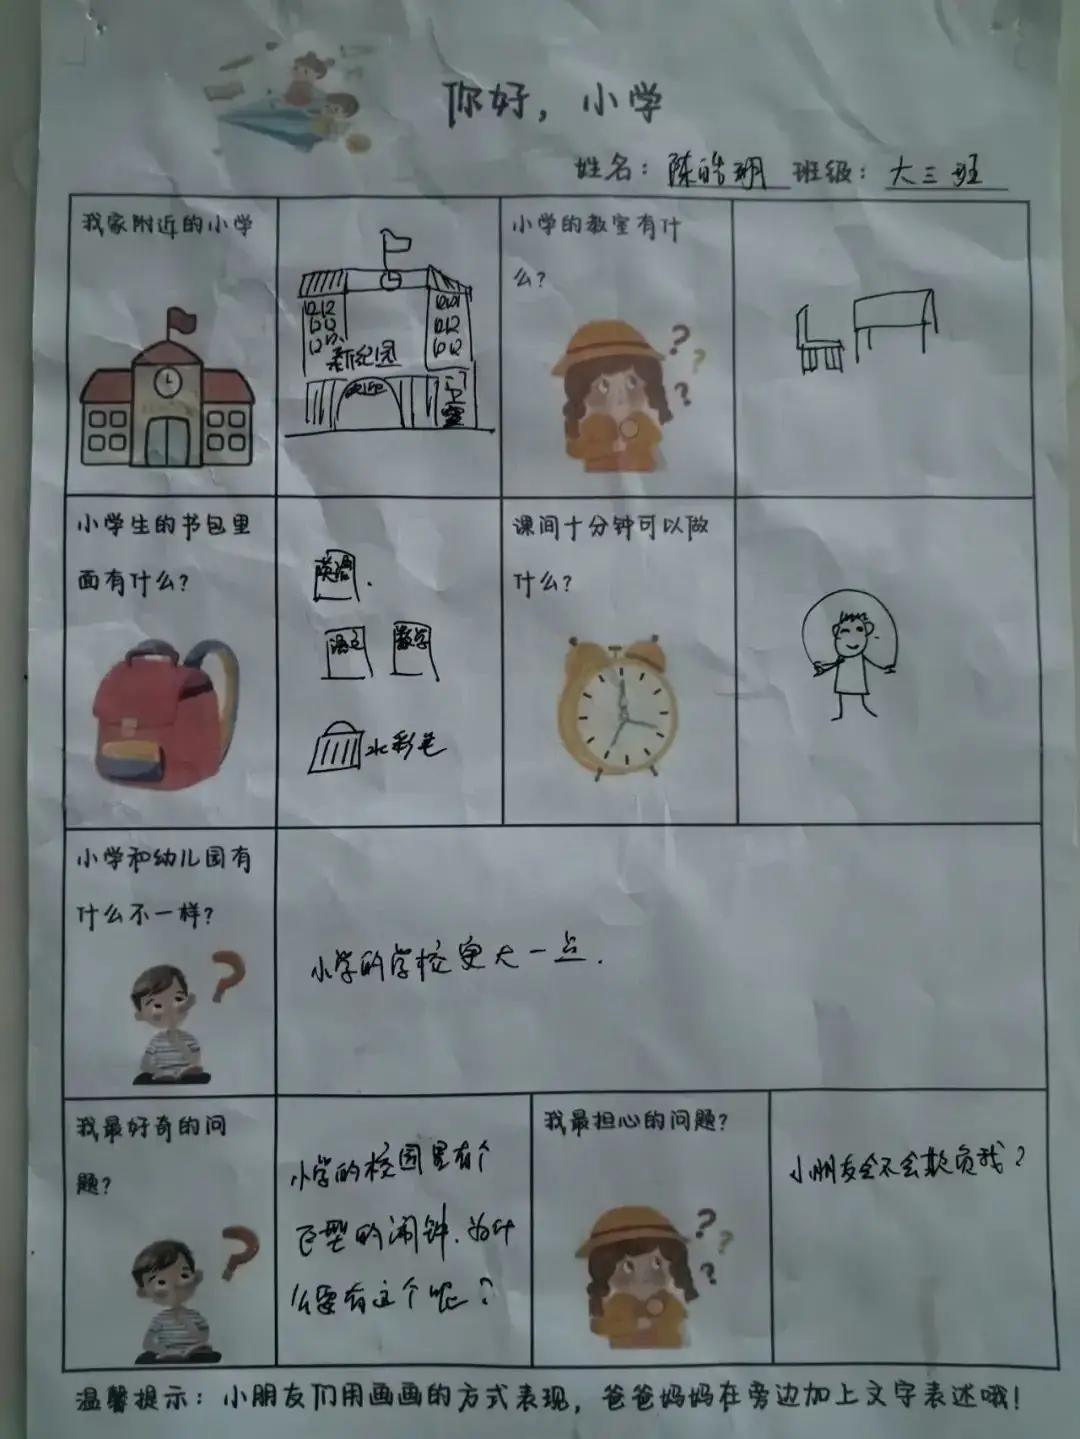 你好，小学
姓名：陈皓玥 班级：大三班
我家附近的小学
新纪园
小学的教室有什
么？
小学生的书包里
面有什么？
英语
语文 数学
水彩笔
课间十分钟可以做
什么？
小学和幼儿园有
什么不一样？
小学的学校更大一点.
我最好奇的问
题？
小学的校园里有个
巨型的闹钟.为什
么要有这个呢？
我最担心的问题？
小朋友会不会欺负我？
温馨提示：小朋友们用画画的方式表现，爸爸妈妈在旁边加上文字表述哦！